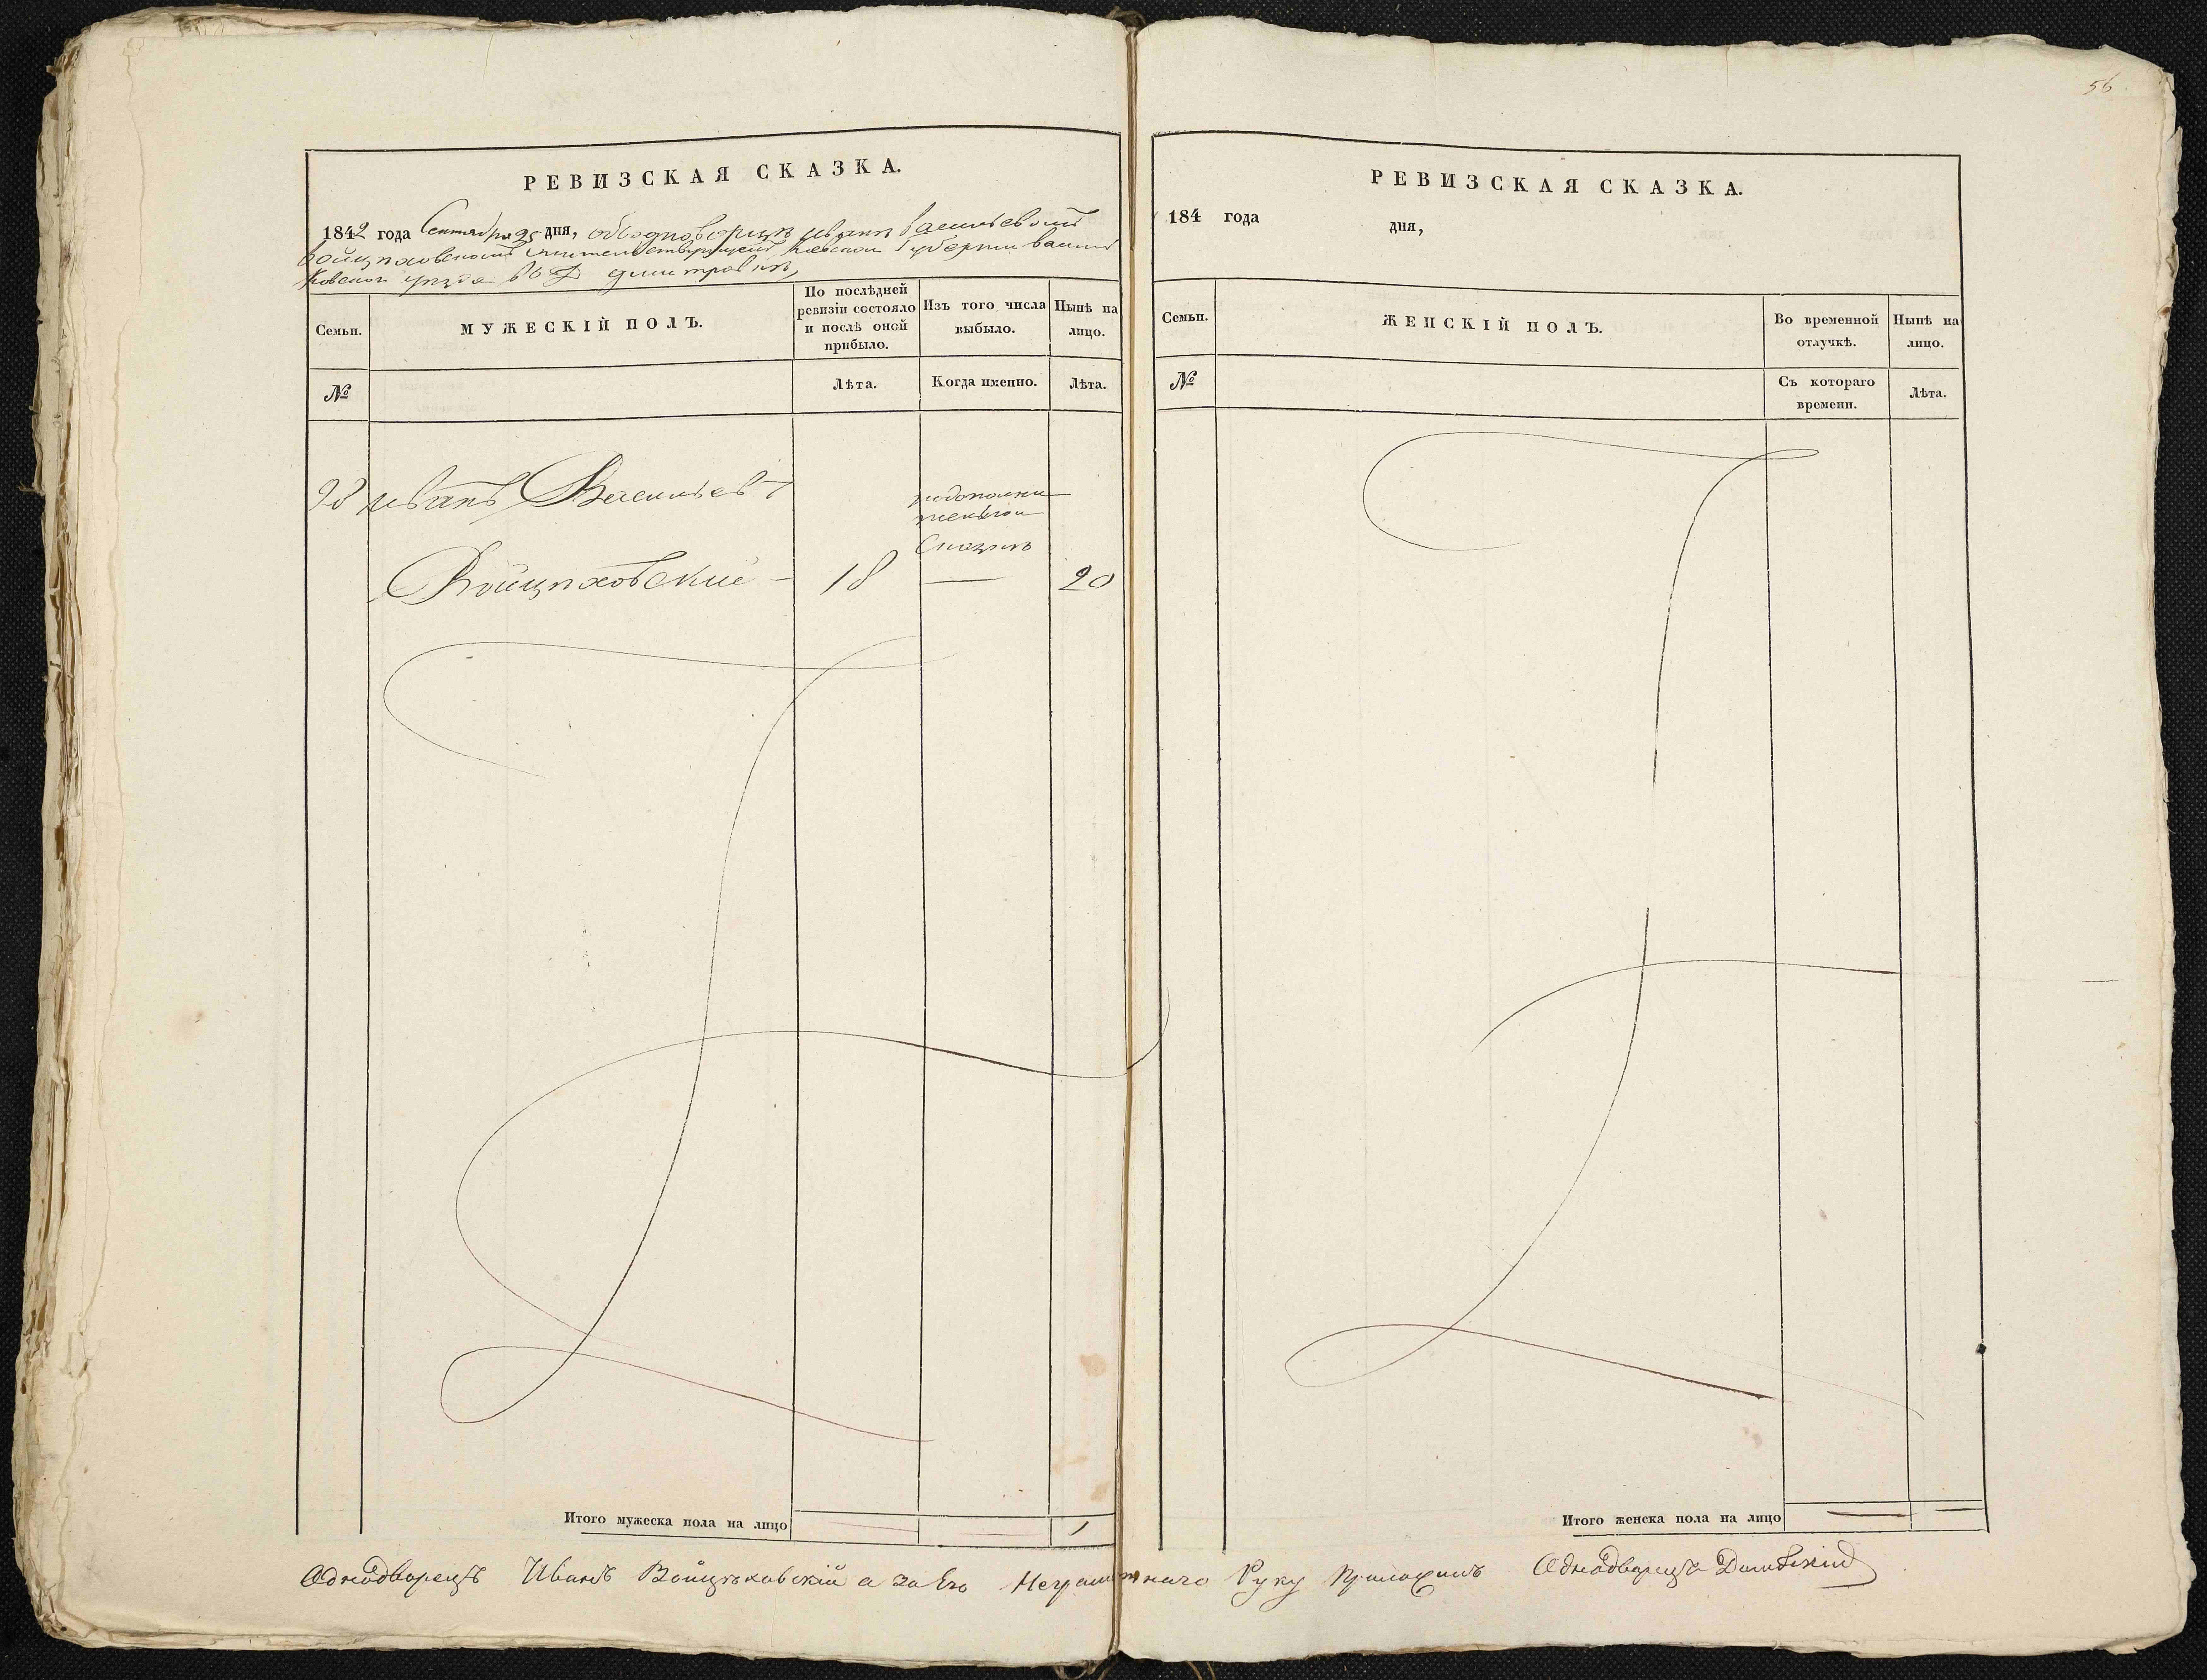 56
РЕВИЗСКАЯ СКАЗКА.
1842 года Сентября 25 дня, объ однодворцѣ Иванѣ Васильевомъ
Войцѣховскомъ жительствующемъ Киевской Губернии Василь
ковского уезда въ Д Дмитровкѣ,
Семьи.
МУЖЕСКІЙ ПОЛЪ.
По послѣдней
ревизіи состояло
и послѣ оной
прибыло.
Изъ того числа
выбыло.
Нынѣ на
лицо.
№
Лѣта.
Когда именно.
Лѣта.
98 Иванъ Васильевъ
Сказки
Войцѣховский 18 — 20
Итого мужеска пола на лицо 1
РЕВИЗСКАЯ СКАЗКА.
184 года
дня,
Семьи.
ЖЕНСКІЙ ПОЛЪ.
Во временной
отлучкѣ.
Нынѣ на
лицо.
№
Съ котораго
времени.
Лѣта.
Итого женска пола на лицо
Однодворецъ Иванъ Войцѣховскій а за Его Неграмотнаго Руку Приложилъ Однодворецъ